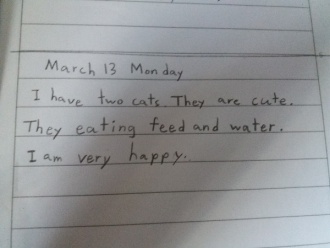 March 13 Monday
I have two cats. They are cute.
They eating feed and water.
I am very happy.